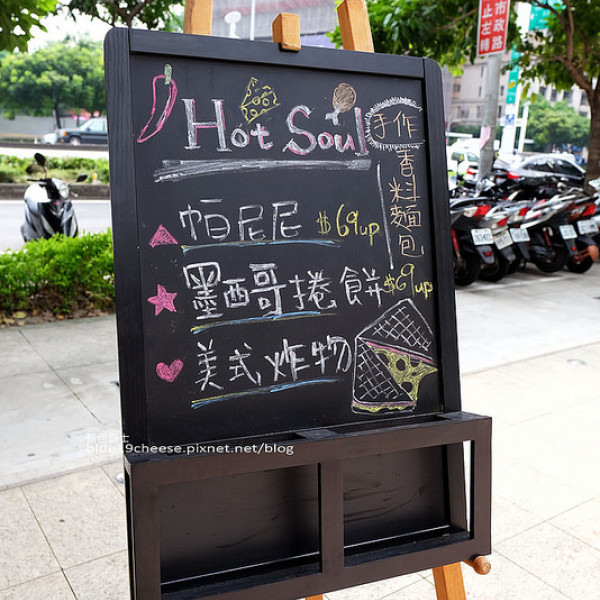 Hot Soul
手作
香料麵包
帕尼尼 $69up
墨西哥捲餅 $69up
美式炸物
市政路
止左轉
blon19cheese.pixnet.net/blog